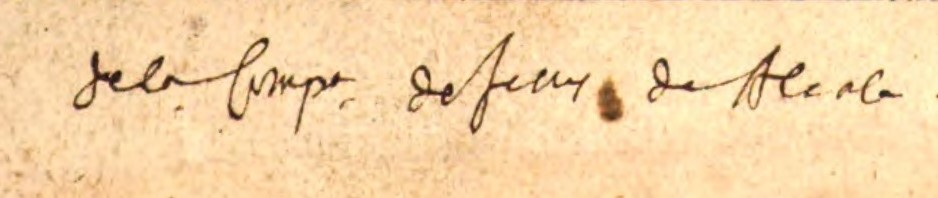 dela Compa. de Jesus de Alcala.